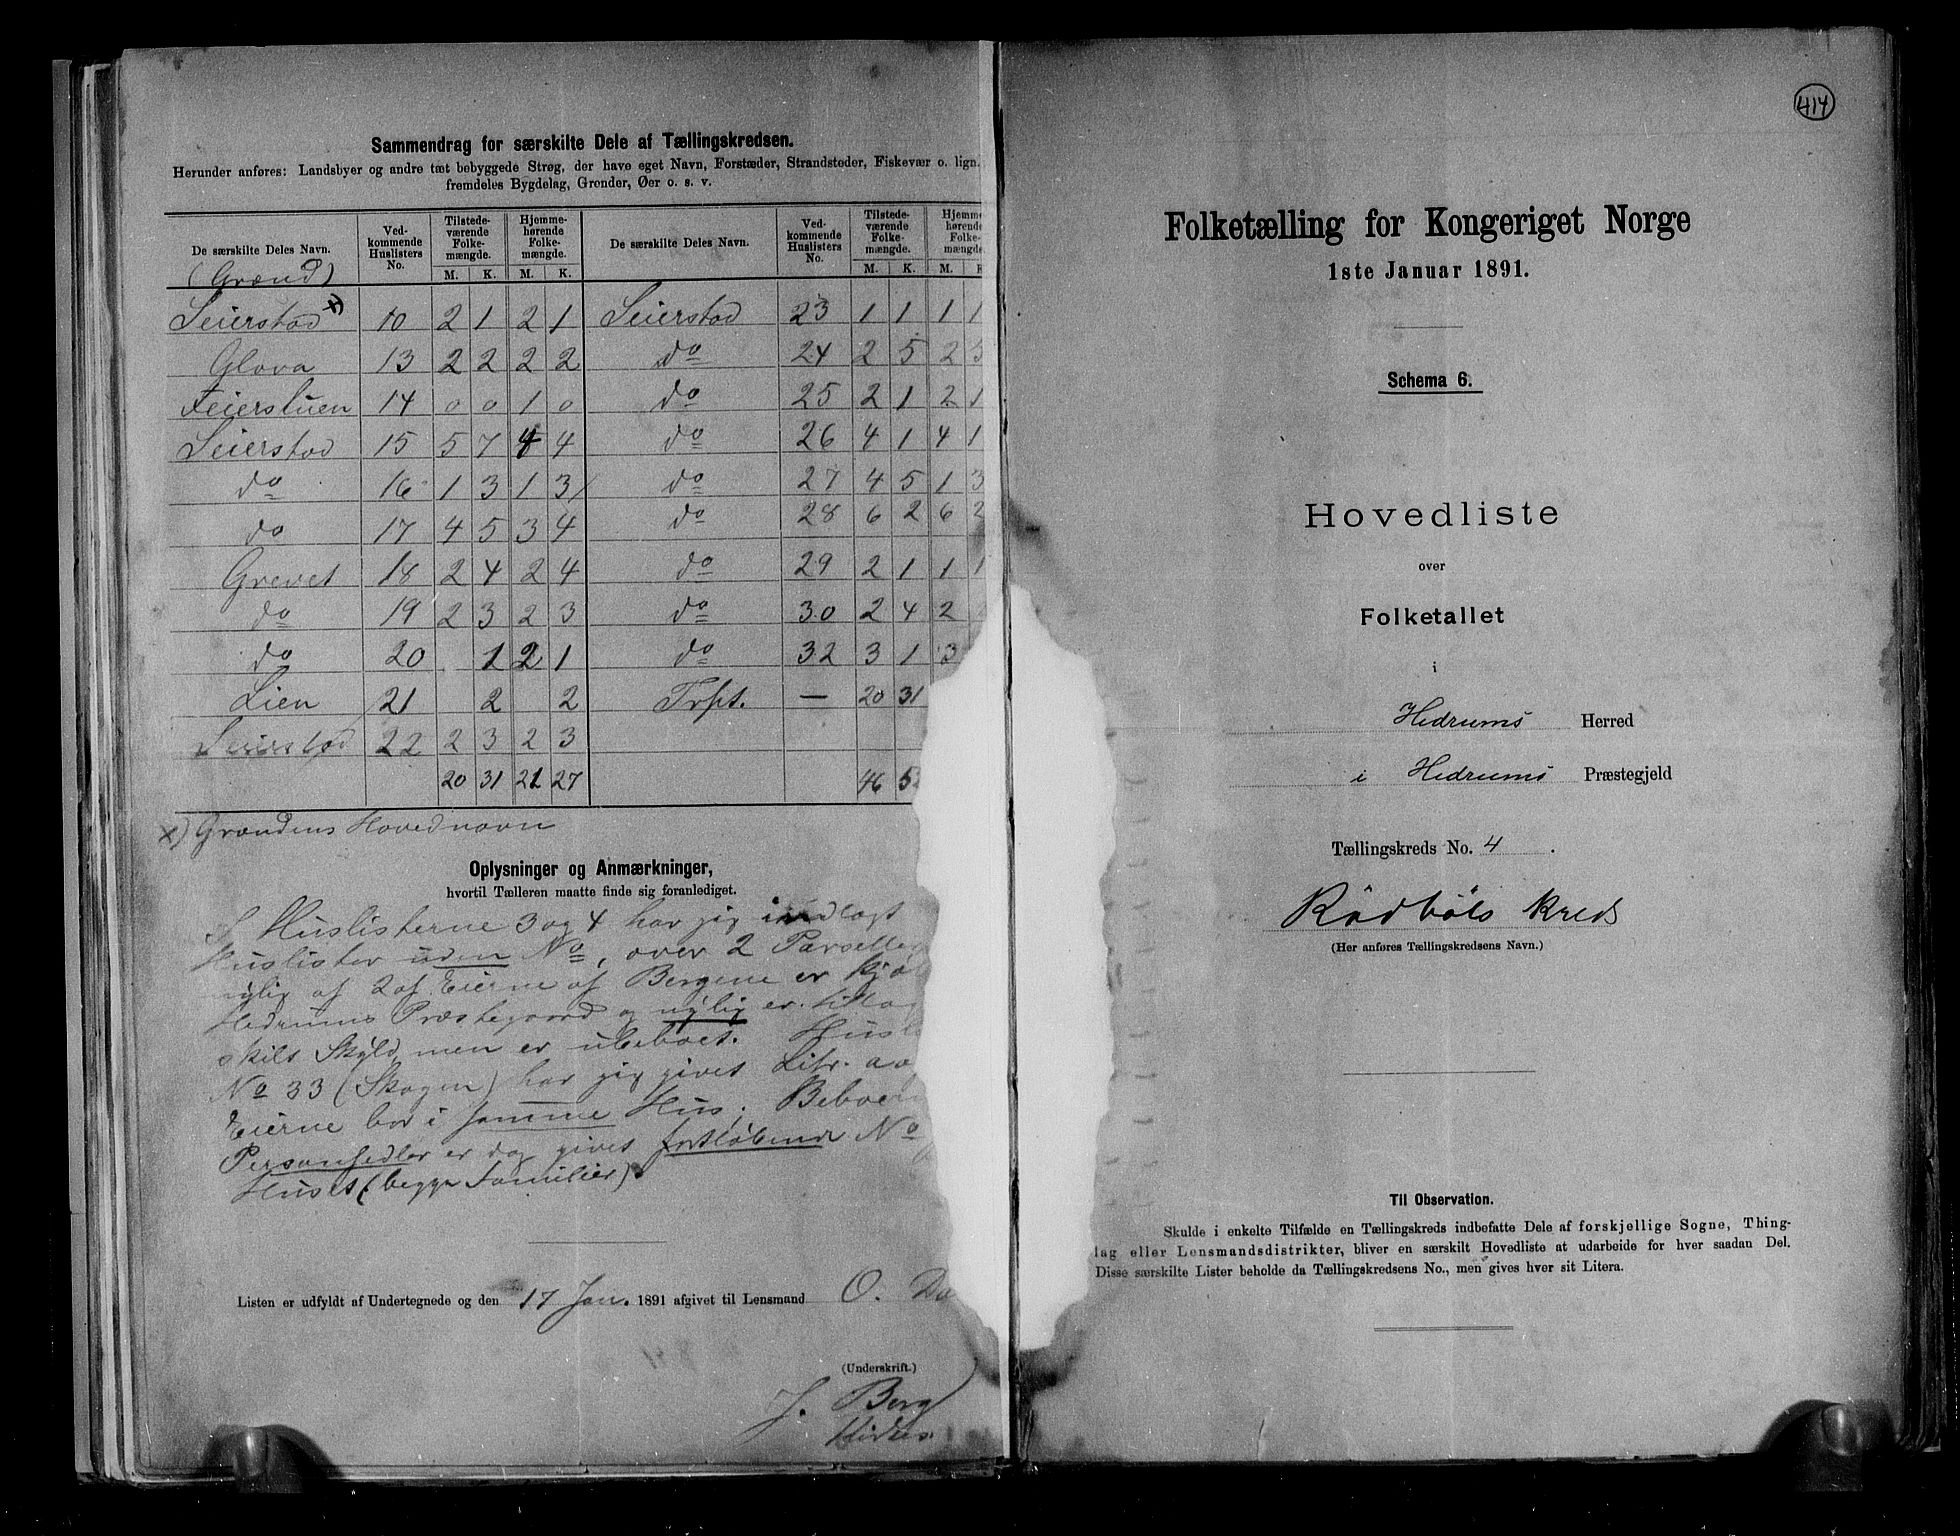 Sammendrag for særskilte Dele af Tællingskredsen.
Herunder anføres: Landsbyer og andre tæt bebyggede Strøg, der have eget Navn, Forstæder, Strandsteder, Fiskevær o. lign.
fremdeles Bygdelag, Grender, Øer o. s. v.
De særskilte Deles Navn. Vedkommende Huslisters No. Tilstedeværende Folkemængde. Hjemmehørende Folkemængde. De særskilte Deles Navn. Vedkommende Huslisters No. Tilstedeværende Folkemængde. Hjemmehørende Folkemængde.
(Grænd) M. K. M. K. M. K. M. K
Seierstad x) 10 2 1 2 1 Seierstad 23 1 1 1 1
Glova 13 2 2 2 2 do 24 2 5 2 5
Feiersluen 14 0 0 1 0 do 25 2 1 2 1
Seierstad 15 5 7 4 4 do 26 4 1 4 1
do 16 1 3 1 3 do 27 4 5 1 3
do 17 4 5 3 4 do 28 6 2 6 2
Grevet 18 2 4 2 4 do 29 2 1 1 1
do 19 2 3 2 3 do 30 2 4 2
do 20 1 2 1 do 32 3 1 3
Lien 21 2 2 Trpt. — 20 31
Seierstad 22 2 3 2 3
20 31 21 27 46
x) Grændens Hovednavn
Oplysninger og Anmærkninger,
hvortil Tælleren maatte finde sig foranlediget.
I Huslisterne 3 og 4 har jeg indlagt
Huslister uden No, over 2 Parseller
nylig af 2 af Eierne af Bergene er
Hedrums Præstegaard og nylig er
skils Skyld, men er ubeboet.
No 33 (Skogen) har jeg givet Litr. a og
Eierne bor i samme Hus;
Personsedler er dog givet fortløbende No
Huset (begge Familier).
Listen er udfyldt af Undertegnede og den 17 Jan. 1891 afgivet til Lensmand O.
(Underskrift.)
J. Berg
414
Folketælling for Kongeriget Norge
1ste Januar 1891.
Schema 6.
Hovedliste
over
Folketallet
i
Hedrums Herred
i Hedrums Præstegjeld
Tællingskreds No. 4.
Rødbøls Kreds
(Her anføres Tællingskredsens Navn.)
Til Observation.
Skulde i enkelte Tilfælde en Tællingskreds indbefatte Dele af forskjellige Sogne, Thing-
lag eller Lensmandsdistrikter, bliver en særskilt Hovedliste at udarbeide for hver saadan Del.
Disse særskilte Lister beholde da Tællingskredsens No., men gives hver sit Litera.